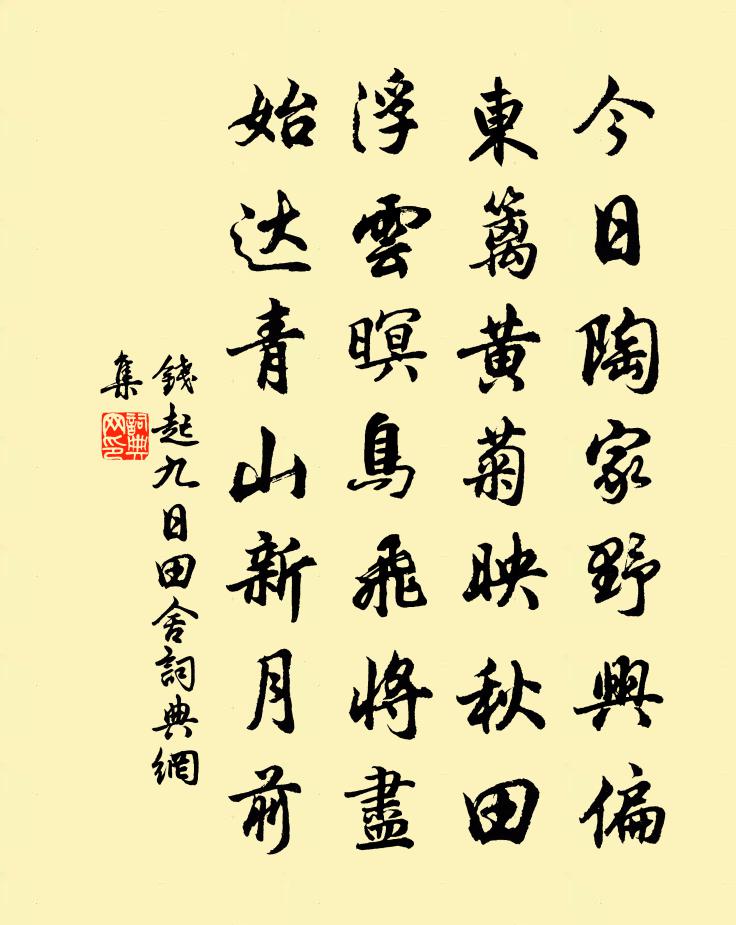 今日陶家野興偏
東籬黃菊映秋田
浮雲暝鳥飛將盡
始达青山新月前
錢起九日田舍詞典網
集
詞典网印